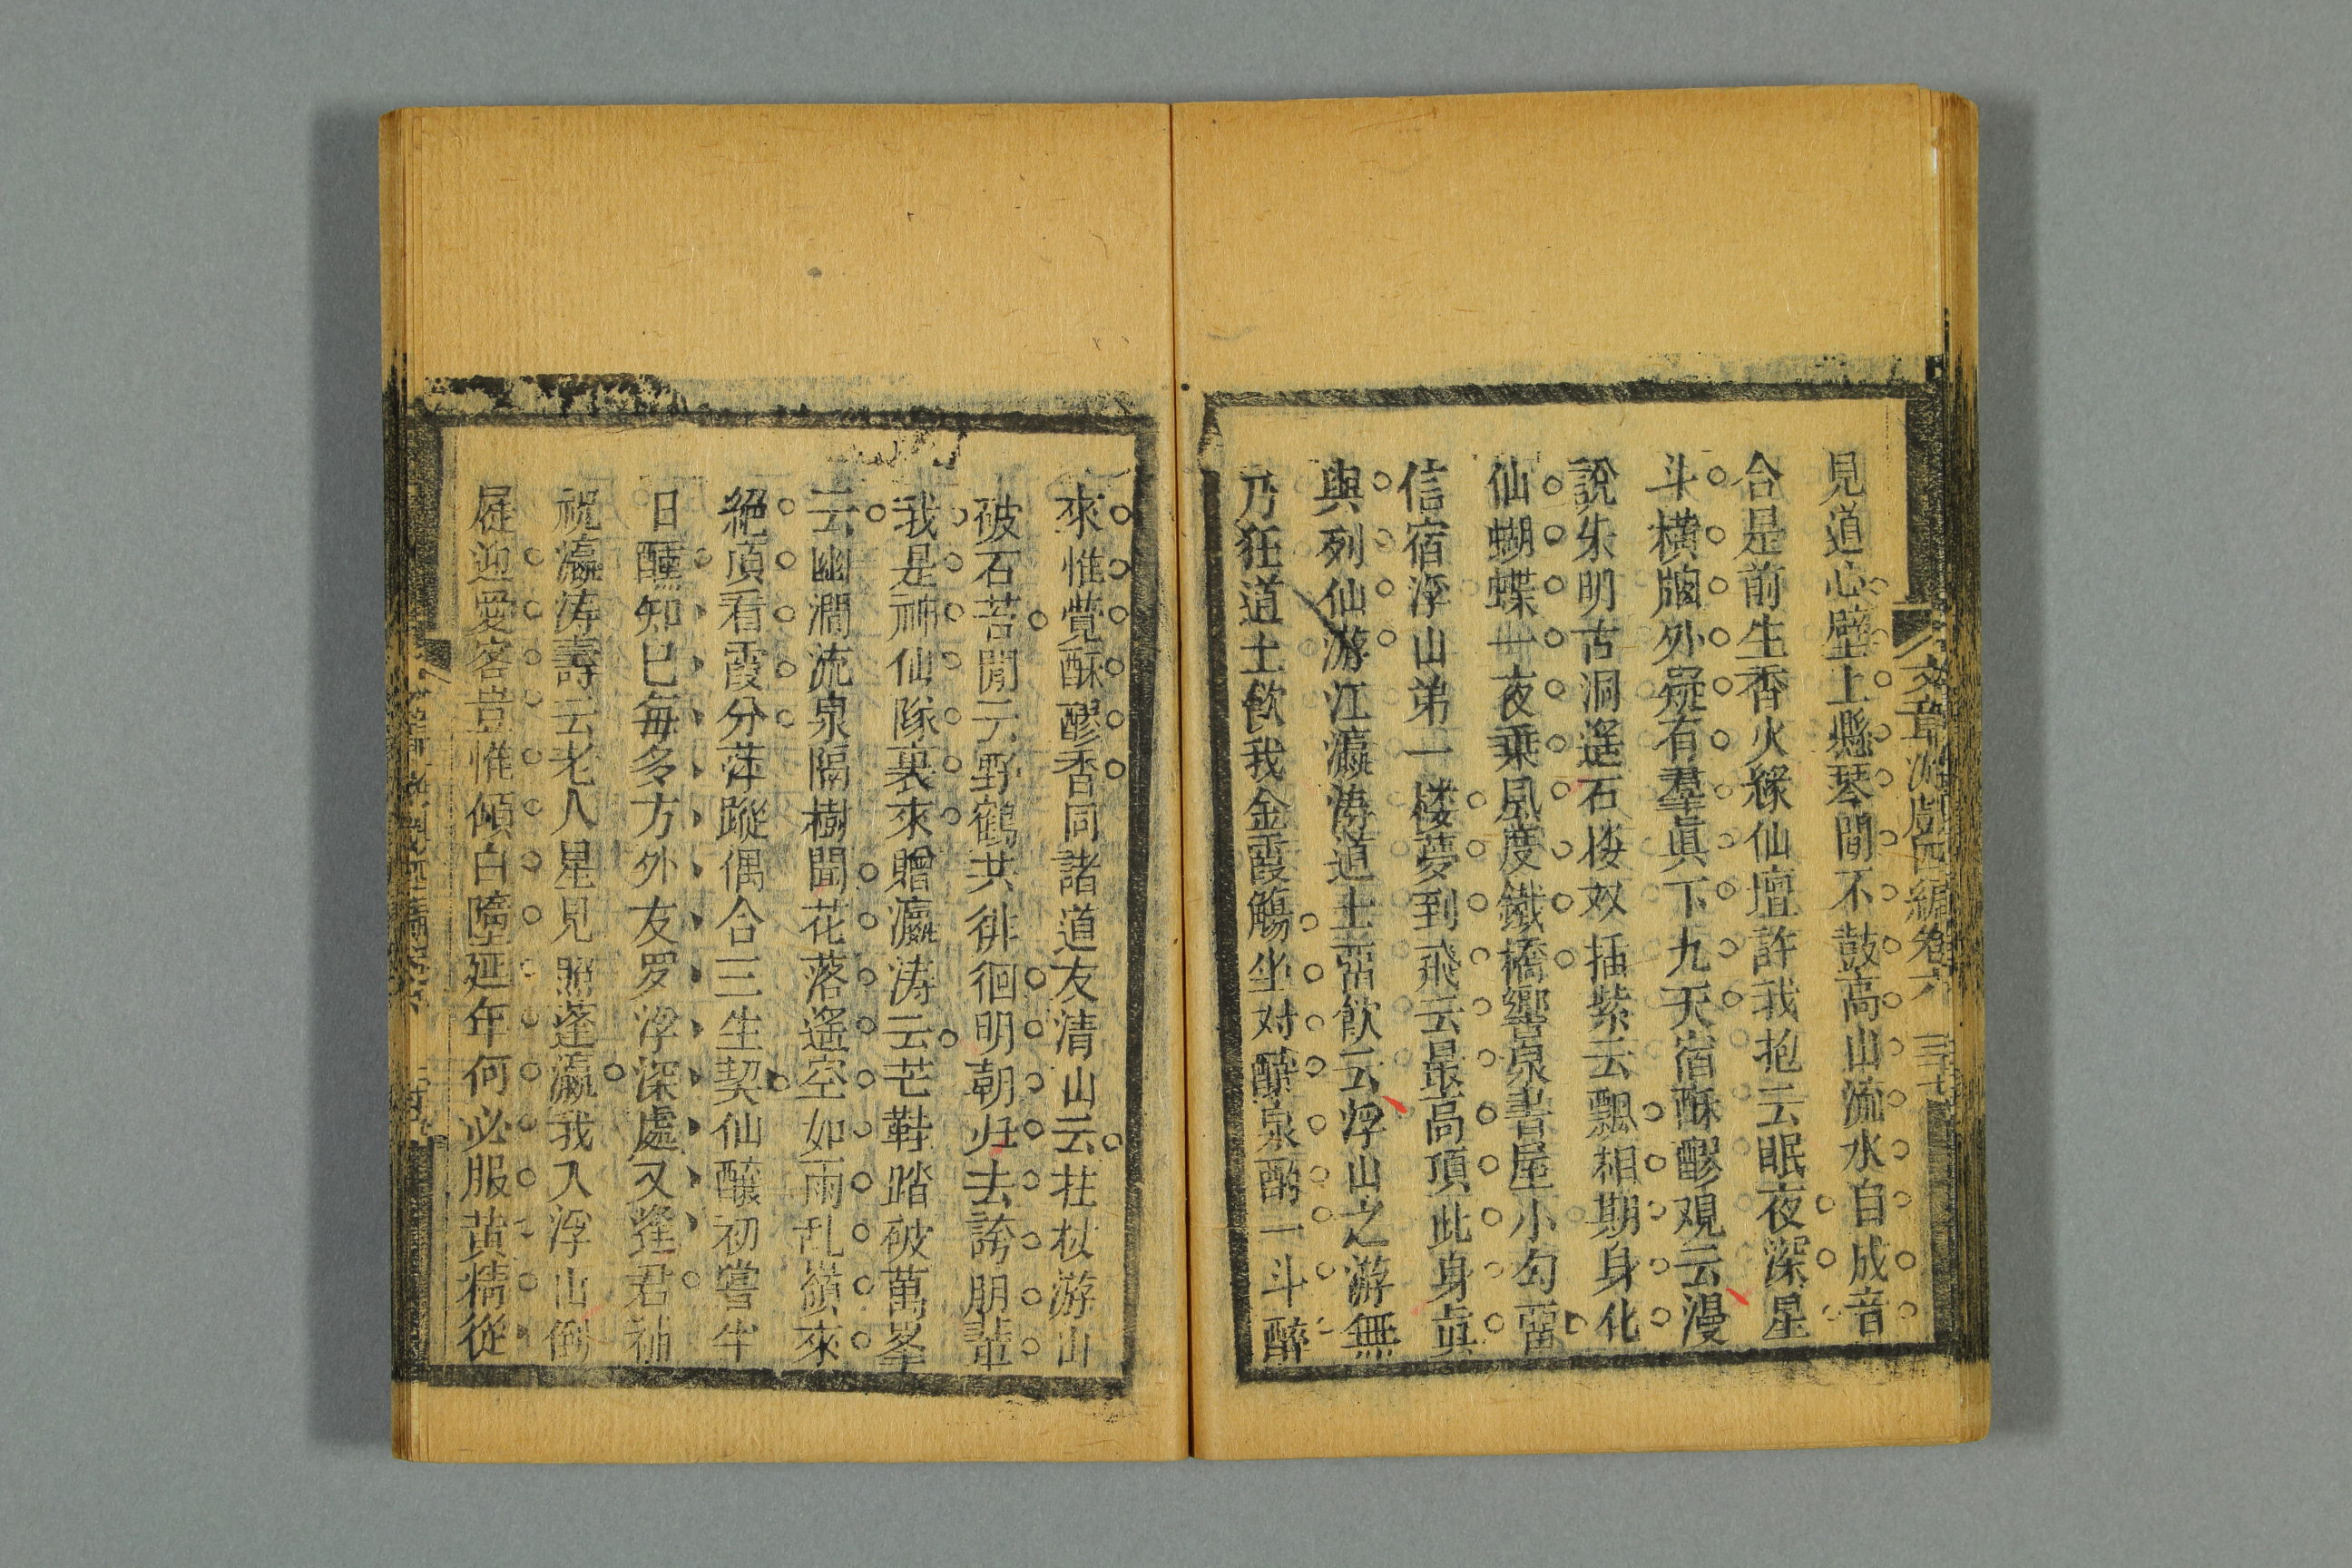 文章游戲四編卷六
見道心壁上懸琴間不鼓高山流水自成音
合是前生香火緣仙壇許我抱云眠夜深星
斗橫牕外疑有羣眞下九天宿酥醪观云漫
說朱明古洞遥石楼双插紫云飄相期身化
仙蝴蝶一夜乗風度鐵橋響泉書屋小勾畱
信宿浮山弟一楼夢到飛云最高頂此身眞
與列仙游江瀛涛道士畱飲云浮山之游無
乃狂道士飲我金霞觴坐对釀泉酌一斗醉
來惟覺酥醪香同諸道友清山云拄杖游山
破石苔閒云野鶴共徘徊明朝归去誇朋輩
我是神仙隊裏來贈瀛涛云芒鞋踏破萬峯
云幽澗流泉隔樹聞花落遥空如雨乱嶺來
絕頂看霞分萍蹤偶合三生契仙釀初嘗半
日醺知己每多方外友罗浮深處又逢君袖
祝瀛涛壽云老人星見照蓬瀛我入浮山倒
屣迎愛客豈惟傾白墮延年何必服黄精從